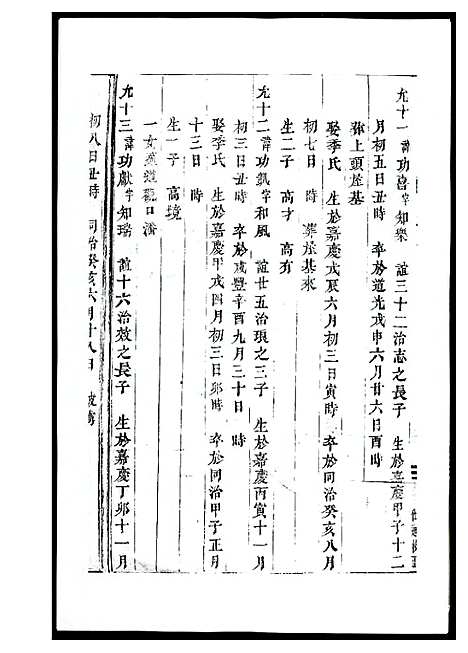 允十一 諱功喜字知樂 誼三十二治志之長子 生於嘉慶甲子十二
月初五日丑時 卒於道光戊申六月廿六日酉時
上頭垄基
娶季氏 生於嘉慶戊辰六月初三日寅時 卒於同治癸亥八月
初七日 時 葬垄基來
生二子 高才 高有
允十二 諱功凱字和風 誼廿五治琅之三子 生於嘉慶丙寅十一月
初三日丑時 卒於咸豐辛酉九月三十日 時
娶季氏 生於嘉慶甲戌四月初三日卯時 卒於同治甲子正月
十三日 時
生一子 高境
一女適道觀口潘
允十三 諱功獻字知瑞 誼十六治效之長子 生於嘉慶丁卯十一月
初八日丑時 同治癸亥六月十八日 被擄